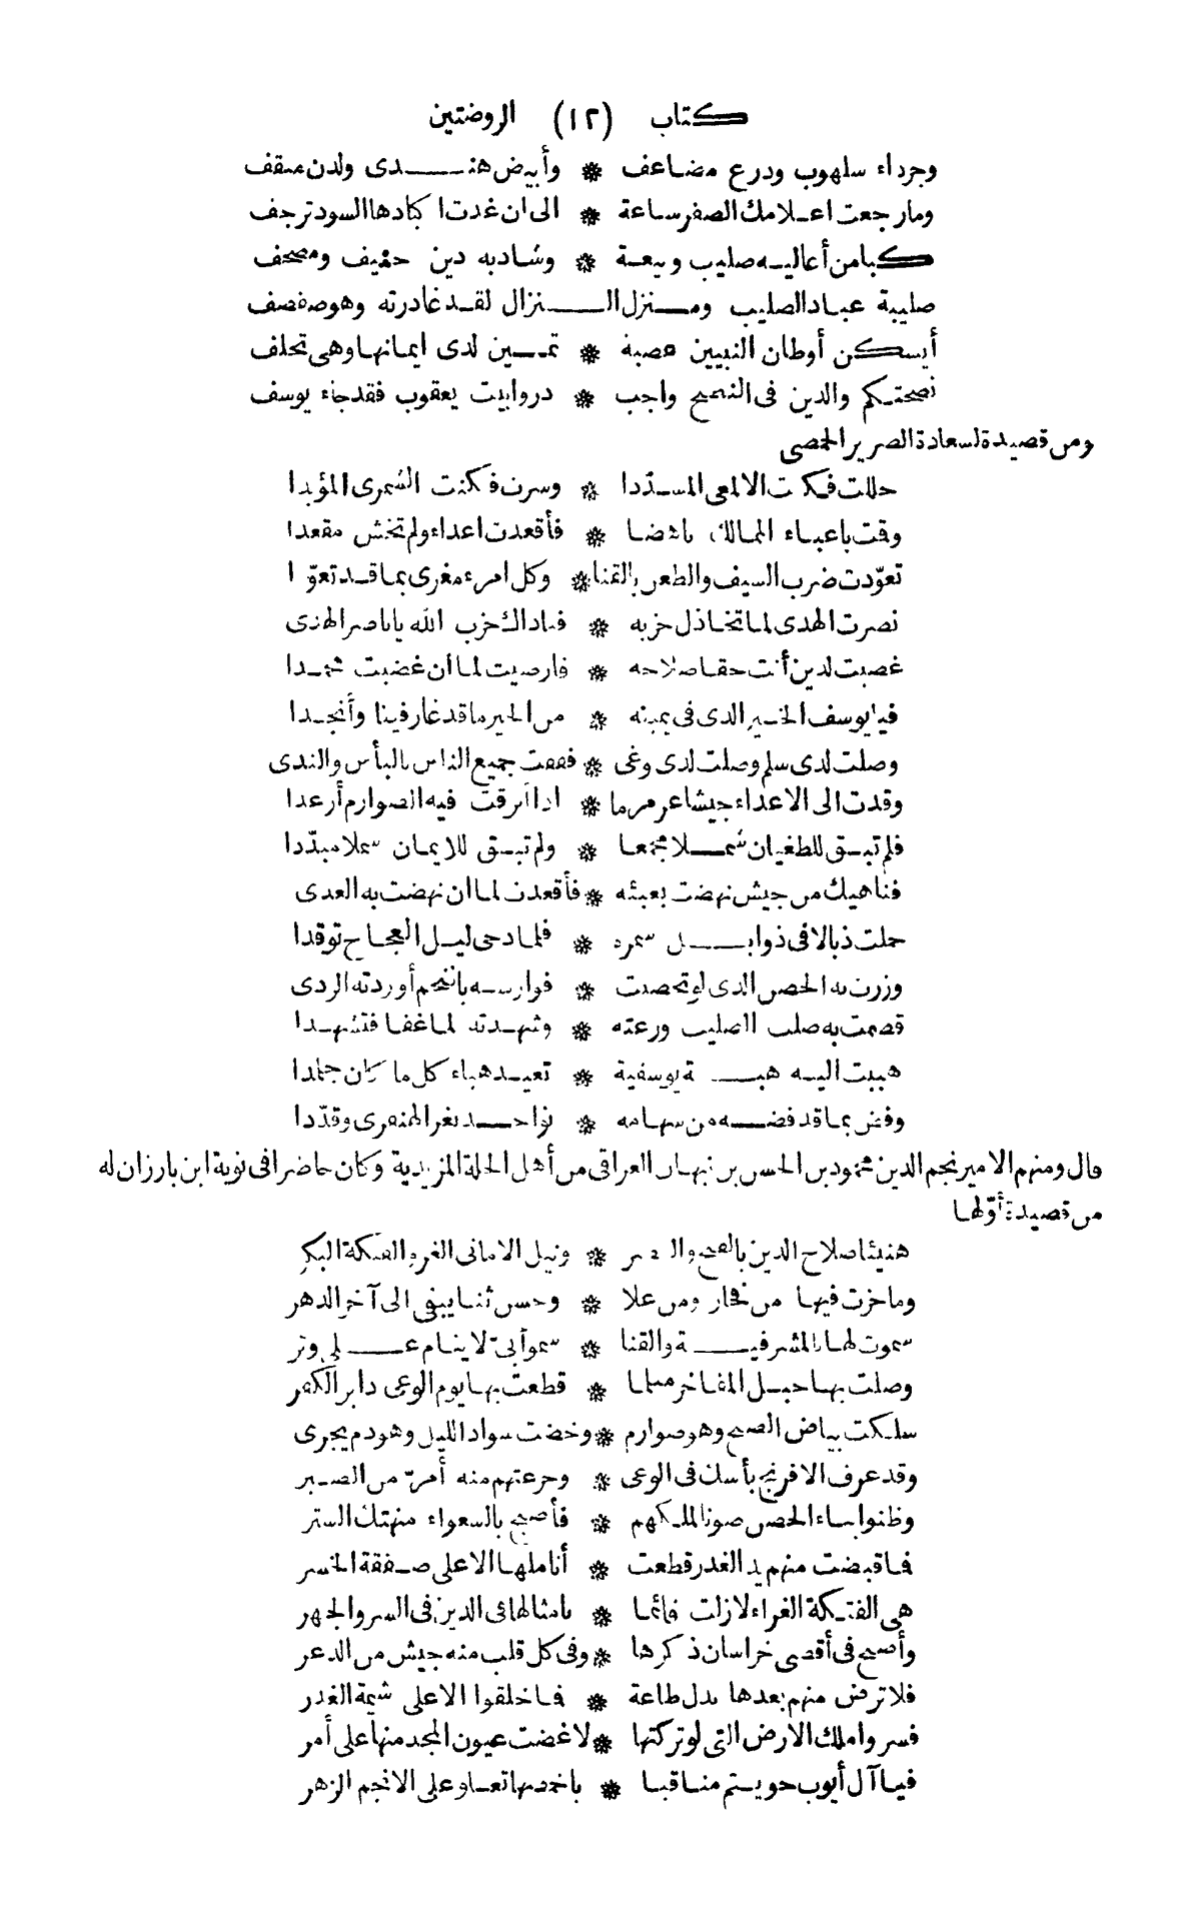 كتاب (١٢) الروضتين
وجرداء سلهوب ودرع مضاعف * وأبيض هندى ولدن مثقف
ومارجعت اعلامك الصفر ساعة * الى ان غدت اكبادها السود ترجف
كبا من أعاليه صليب وبيعة * وشاد به دين حنيف ومصحف
صليبة عباد الصليب ومنزل النزال لقد غادرته وهو صفصف
أيسكن أوطان النبيين عصبة * تمين لدى ايمانها وهى تحلف
نصحتكم والدين فى النصح واجب * ذروا بيت يعقوب فقد جاء يوسف
ومن قصيدة لسعادة الضرير الحمصى
حللت فكنت الالمعى المسددا * وسرت فكنت الشمرى المؤيدا
وقمت باعباء الممالك ناهضا * فأقعدت اعداء ولم تخش مقعدا
تعوّدت ضرب السيف والطعن بالقنا * وكل امرء مغرى بما قد تعوّدا
نصرت الهدى لما تخاذل حزبه * فناداك حزب الله يا ناصر الهدى
غضبت لدين أنت حقا صلاحه * فارضيت لما أن غضبت محمدا
فيا يوسف الخير الذى فى يمينه * من الخير ما قد غار فينا وأنجدا
وصلت لدى سلم وصلت لدى وغى * ففقت جميع الناس بالبأس والندى
وقدت الى الاعداء جيشا عرمرما * اذا أبرقت فيه الصوارم أرعدا
فلم تبق للطغيان شملا مجمعا * ولم تبق للايمان شملا مبدّدا
فناهيك من جيش نهضت بعبئه * فأقعدت لما ان نهضت به العدى
حملت ذبالا فى ذوابل سمره * فلما دجى ليل العجاج توقدا
وزرت به الحصن الذى لو تحصنت * فوارسه بالنجم أوردته الردى
قصمت به صلب الصليب ورعته * وشهدته لما غفا فتشهدا
هببت اليه هبة يوسفية * تعيد هباء كل ما كان جلمدا
وفض بما قد فضه من سهامه * نواجذ ثغر الهنفرى وقدّدا
قال ومنهم الامير نجم الدين محمود بن الحسن بن نبهان العراقى من أهل الحلة المزيدية وكان حاضرا فى نوبة ابن بارزان له
من قصيدة أوّلها
هنيئا صلاح الدين بالفتح والنصر * ونيل الامانى الغر والفتكة البكر
وما حزت فيها من فخار ومن علا * وحسن ثنا يبقى الى آخر الدهر
سموت لها بالمشرفية والقنا * سموأبىّ لا ينام على وتر
وصلت بها حبل المفاخر مثلما * قطعت بها يوم الوغى دابر الكفر
سلكت بياض الصبح وهو صوارم * وخضت سواد الليل وهو دم يجرى
وقد عرف الافرنج بأسك فى الوغى * وجرعتهم منه أمرّ من الصبر
وظنوا بناء الحصن صونا لملكهم * فأصبح بالشعواء منهتك الستر
فما قبضت منهم يد الغدر قطعت * أناملها الا على صفقة الخسر
هى الفتكة الغراء لازلت قائما * بامثالها فى الدين فى السر والجهر
وأصبح فى أقصى خراسان ذكرها * وفى كل قلب منه جيش من الذعر
فلا ترض منهم بعدها بذل طاعة * فما خلقوا الا على شيمة الغدر
فسر واملك الارض التى لو تركتها * لا غضت عيون المجد منها على أمر
فيا آل أيوب حويتم مناقبا * باخمصها تعلو على الانجم الزهر